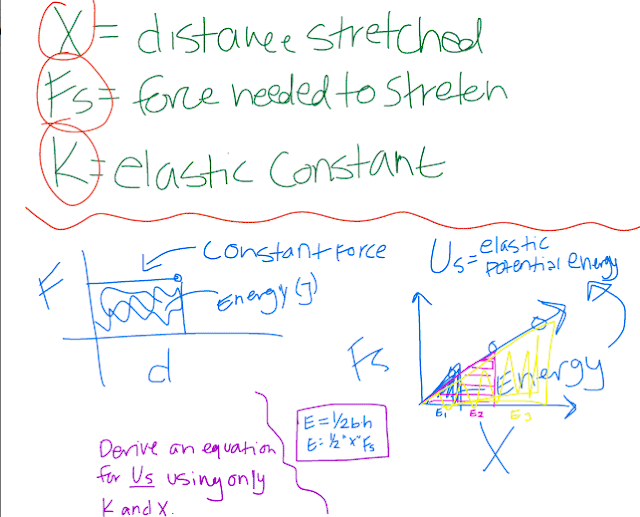 X = distance stretched
Fs = force needed to stretch
K = elastic constant
Constant Force
F
Energy (J)
d
Us = elastic
Potential energy
Fs
Energy
E1 E2 E3
X
E = 1/2bh
E = 1/2 "x" Fs
Derive an equation
for Us using only
K and X.